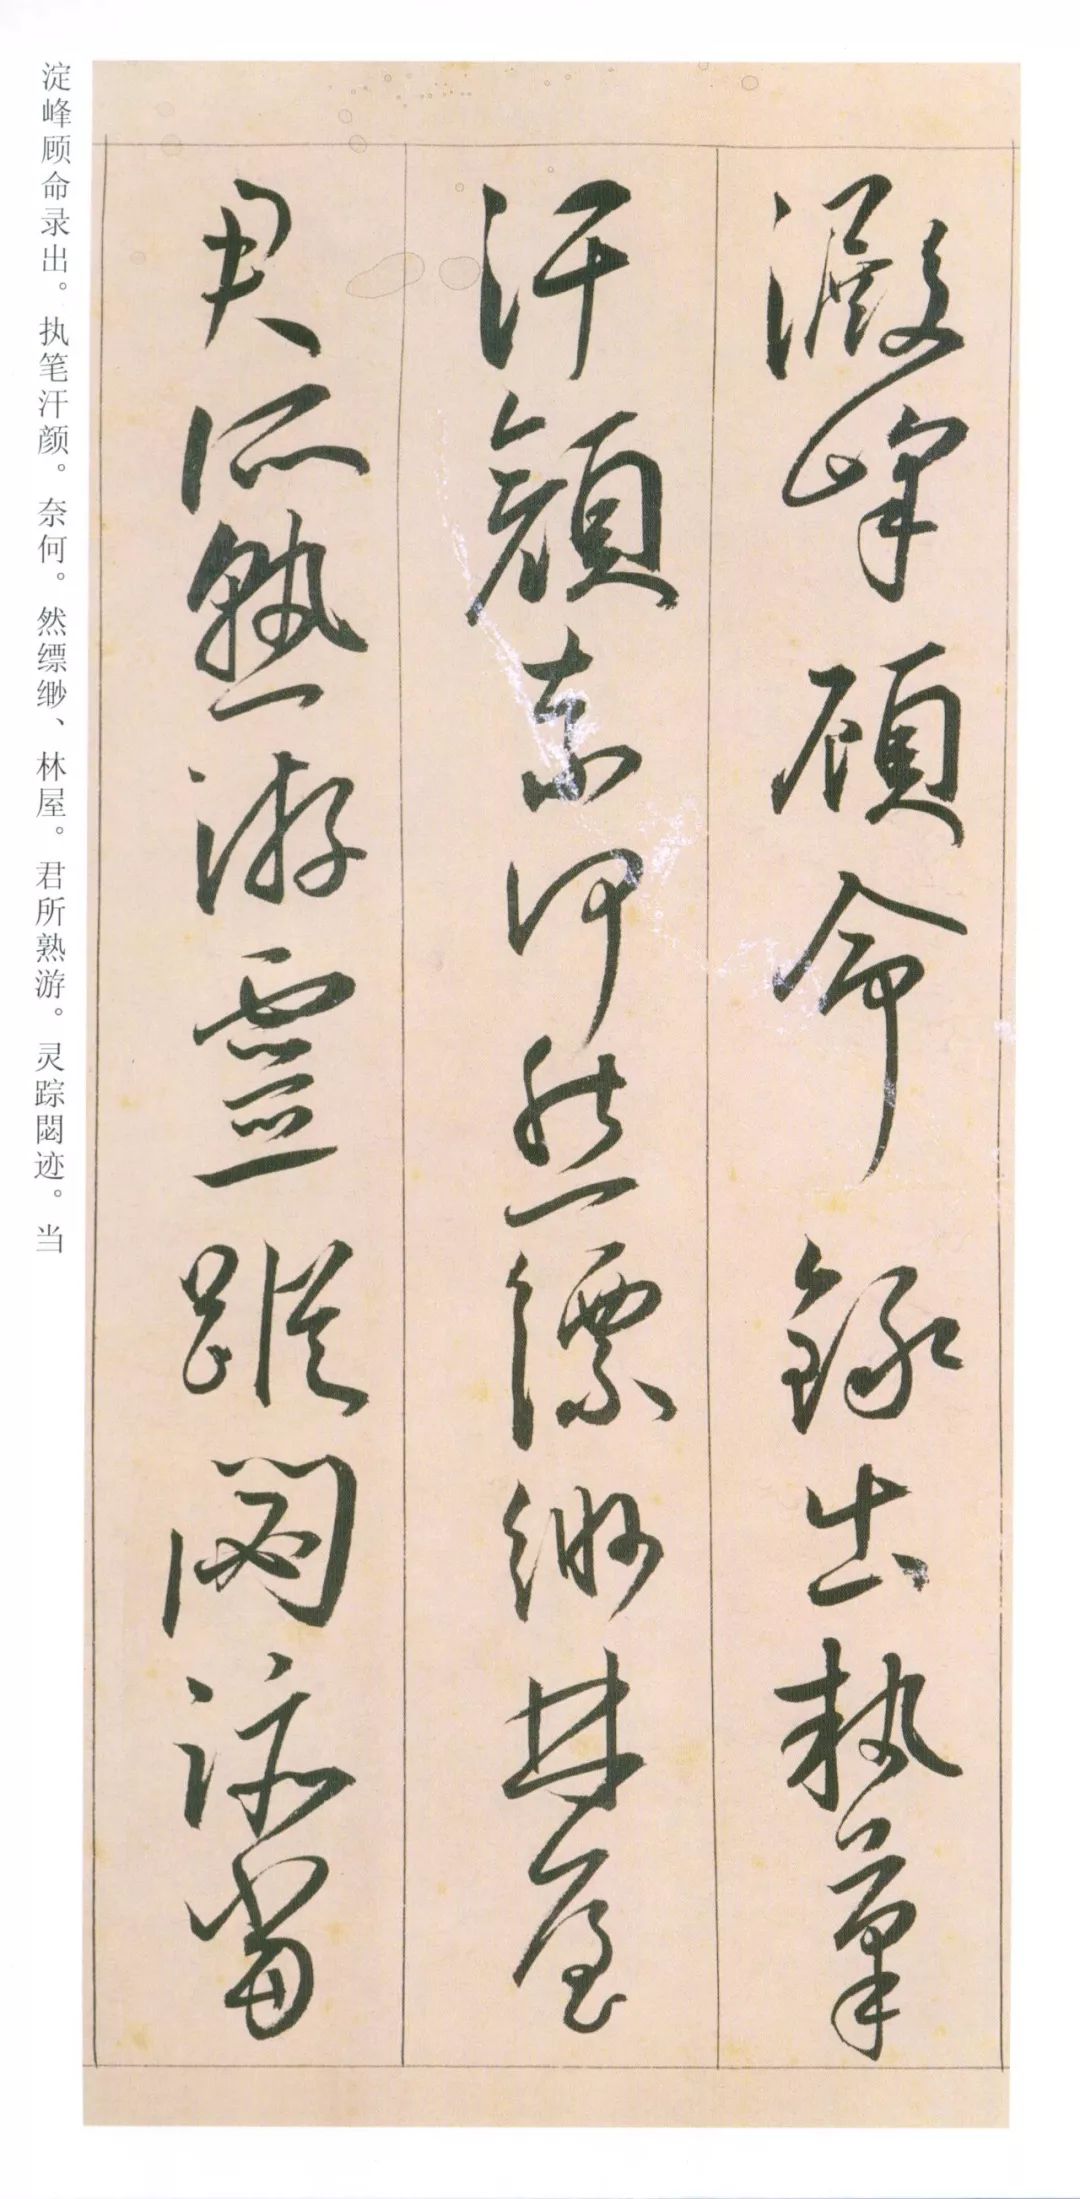 澱峰顧命錄出執筆
汗顏奈何然縹緲林屋
君所熟游靈蹤閟迹當
淀峰顾命录出。执笔汗颜。奈何。然缥缈、林屋。君所熟游。灵踪閟迹。当